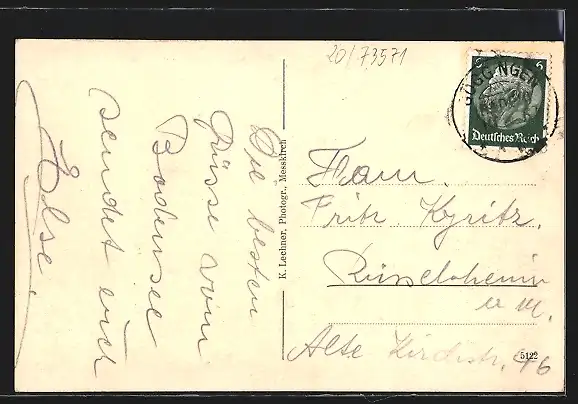 20/73571
GÖGGINGEN
6
Deutsches Reich
Die besten
Grüsse vom
Bodensee
sendet euch
Else.
K. Lechner, Photogr., Messkirch
Fam.
Fritz Kyritz.
Rüsselsheim
a. M.
Alte Kirchstr. 46
5122